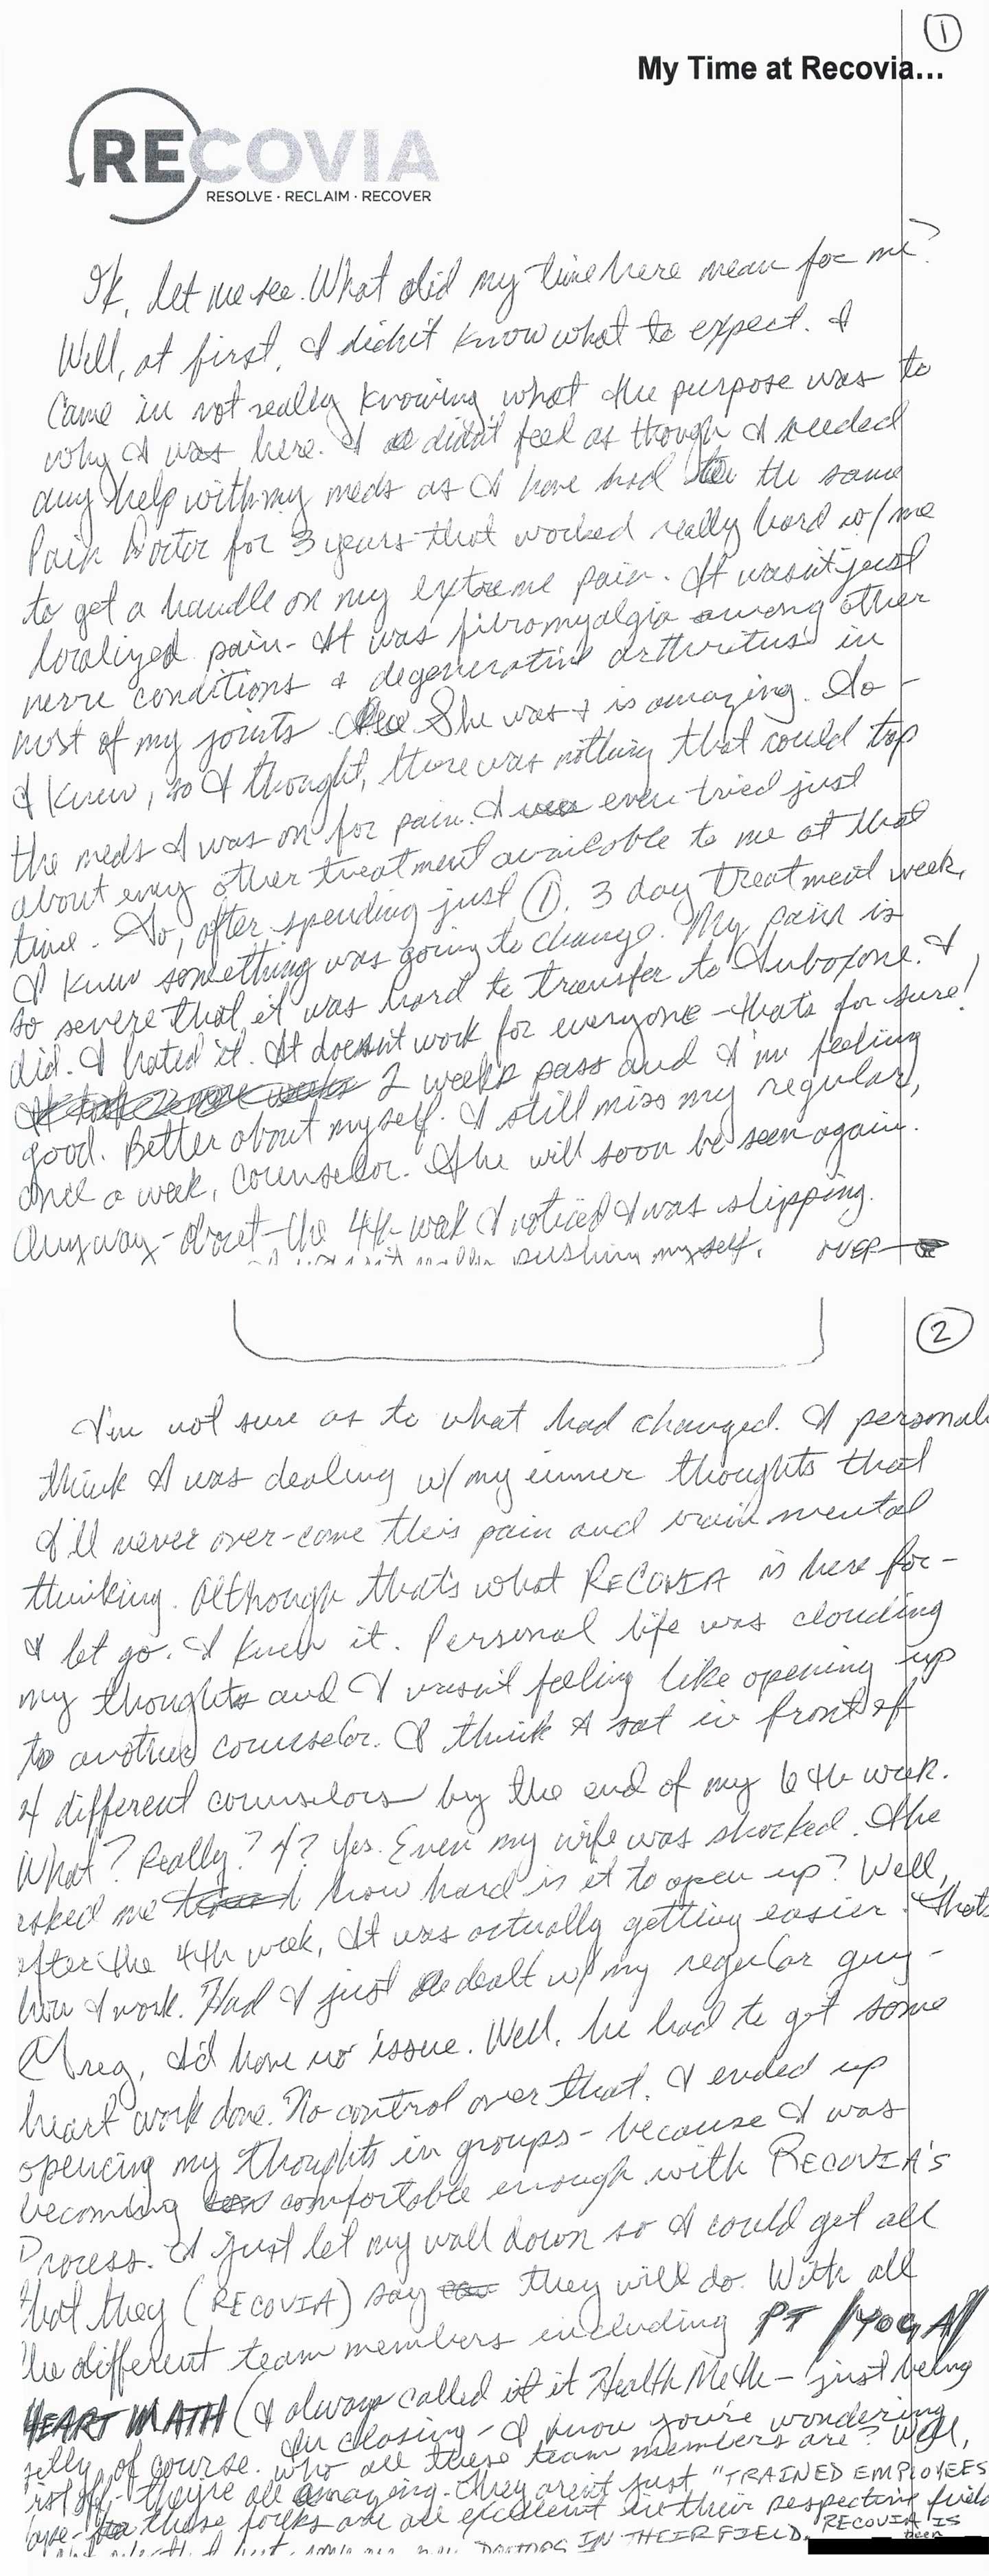 1
My Time at Recovia...
RECOVIA
RESOLVE · RECLAIM · RECOVER
Ok, let me see. What did my time here mean for me?
Well, at first, I didn't know what to expect. I
came in not really knowing what the purpose was to
why I was here. I didn't feel as though I needed
any help with my meds as I have had the same
Pain Doctor for 3 years that worked really hard w/ me
to get a handle on my extreme pain. It wasn't just
localized pain - It was fibromyalgia among other
nerve conditions & degenerative arthritis in
most of my joints. She was & is amazing. So -
I knew, so I thought, there was nothing that could top
the meds I was on for pain. I even tried just
about every other treatment available to me at that
time. So, after spending just 1, 3 day treatment week,
I knew something was going to change. My pain is
so severe that it was hard to transfer to Suboxone. I
did. I hated it. It doesn't work for everyone - that's for sure!
2 weeks pass and I'm feeling
good. Better about myself. I still miss my regular,
once a week, counselor. She will soon be seen again.
Anyway - about the 4th week I noticed I was slipping.
I wasn't really pushing myself. OVER
2
I'm not sure as to what had changed. I personal
think I was dealing w/ my inner thoughts that
I'll never over-come this pain and mental
thinking. Although that's what RECOVIA is here for -
I let go. I knew it. Personal life was clouding
my thoughts and I wasn't feeling like opening up
to another counselor. I think I sat in front of
4 different counselors by the end of my 6th week.
What? Really? 4? Yes. Even my wife was shocked. She
asked me how hard is it to open up? Well,
after the 4th week, It was actually getting easier. That's
how I work. Had I just dealt w/ my regular guy -
Greg, I'd have no issue. Well, he had to get some
heart work done. No control over that. I ended up
opening my thoughts in groups - because I was
becoming comfortable enough with RECOVIA's
Process. I just let my wall down so I could get all
that they (RECOVIA) say they will do. With all
the different team members including PT / YOGA /
HEART MATH (I always called it Health Meth - just being
silly, of course. In closing - I know you're wondering
who all these team members are? Well,
first off - they're all amazing. They aren't just "TRAINED EMPLOYEES
these folks are all excellent in their respective field
DOCTORS IN THEIR FIELD. RECOVIA IS